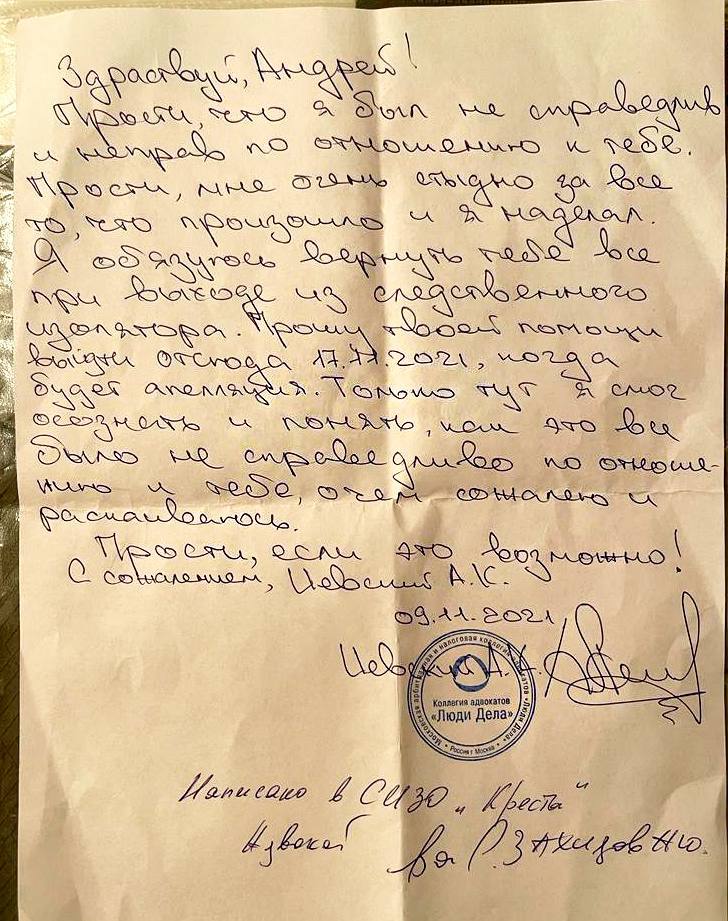 Здраствуй, Андрей!
Прости, что я был не справедлив
и неправ по отношению к тебе.
Прости, мне очень стыдно за все
то, что произошло и я наделал.
Я обязуюсь вернуть тебе все
при выходе из следственного
изолятора. Прошу твоей помощи
выйти отсюда 17.11.2021, когда
будет апелляция. Только тут я смог
осознать и понять, как это все
было не справедливо по отноше-
нию к тебе, о чем сожалею и
раскаиваюсь.
Прости, если это возможно!
С сожалением, Цевский А.К.
09.11.2021
Цевский А.К.
Московская арбитражная и налоговая коллегия адвокатов «Люди Дела»
Коллегия адвокатов
«Люди Дела»
Россия г Москва
Написано в СИЗО „Кресты“
Адвокат Захидов